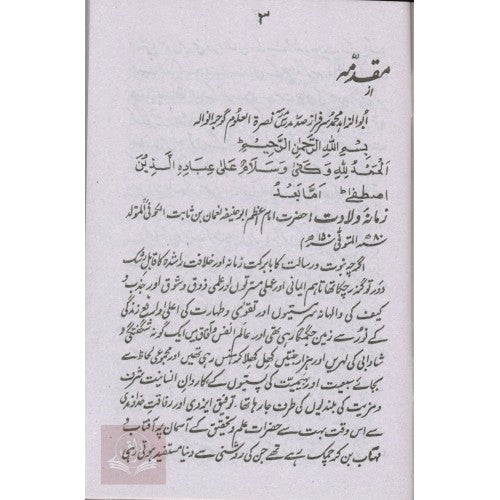 ۳
مقدمہ
از
ابوالزاہد محمد سرفراز صفدر مدرس نصرۃ العلوم گوجرانوالہ
بِسْمِ اللّٰہِ الرَّحْمٰنِ الرَّحِیْمِ ط
اَلْحَمْدُ لِلّٰہِ وَکَفٰی وَسَلَامٌ عَلٰی عِبَادِہِ الَّذِیْنَ
اصْطَفٰی ط اَمَّا بَعْدُ
زمانۂ ولادت : حضرت امام اعظم ابوحنیفہ نعمان بن ثابت الکوفی (المولد
سنہ ۸۰ھ المتوفی سنہ ۱۵۰ھ)
اگرچہ نبوت و رسالت کا بابرکت زمانہ اور خلافت راشدہ کا قابل رشک
دور تو گذر چکا تھا تاہم ایمانی اور عملی مسرتوں اور علمی ذوق و شوق اور جذب و
کیف کی والہانہ سرمستیوں اور تقویٰ و طہارت کی اعلیٰ و ارفع زندگی
کے نور سے زمین جگمگا رہی تھی اور عالم انفس و آفاق میں ایک گونہ شگفتگی و
شادابی کی لہریں اور ہزار جنتیں کھل کھلا کر ہنس رہی تھیں اور مجموعی لحاظ سے
بجائے سبعیت اور بہیمیت کی پستیوں کے کاروان انسانیت شرف
و مزیت کی بلندیوں کی طرف جا رہا تھا۔ توفیق ایزدی اور رفاقت خداوندی
سے اس وقت بہت سے حضرات علم و تحقیق کے آسمان پر آفتاب و
مہتاب بن کر چمک رہے تھے جن کی روشنی سے دنیا مستفید ہو رہی تھی